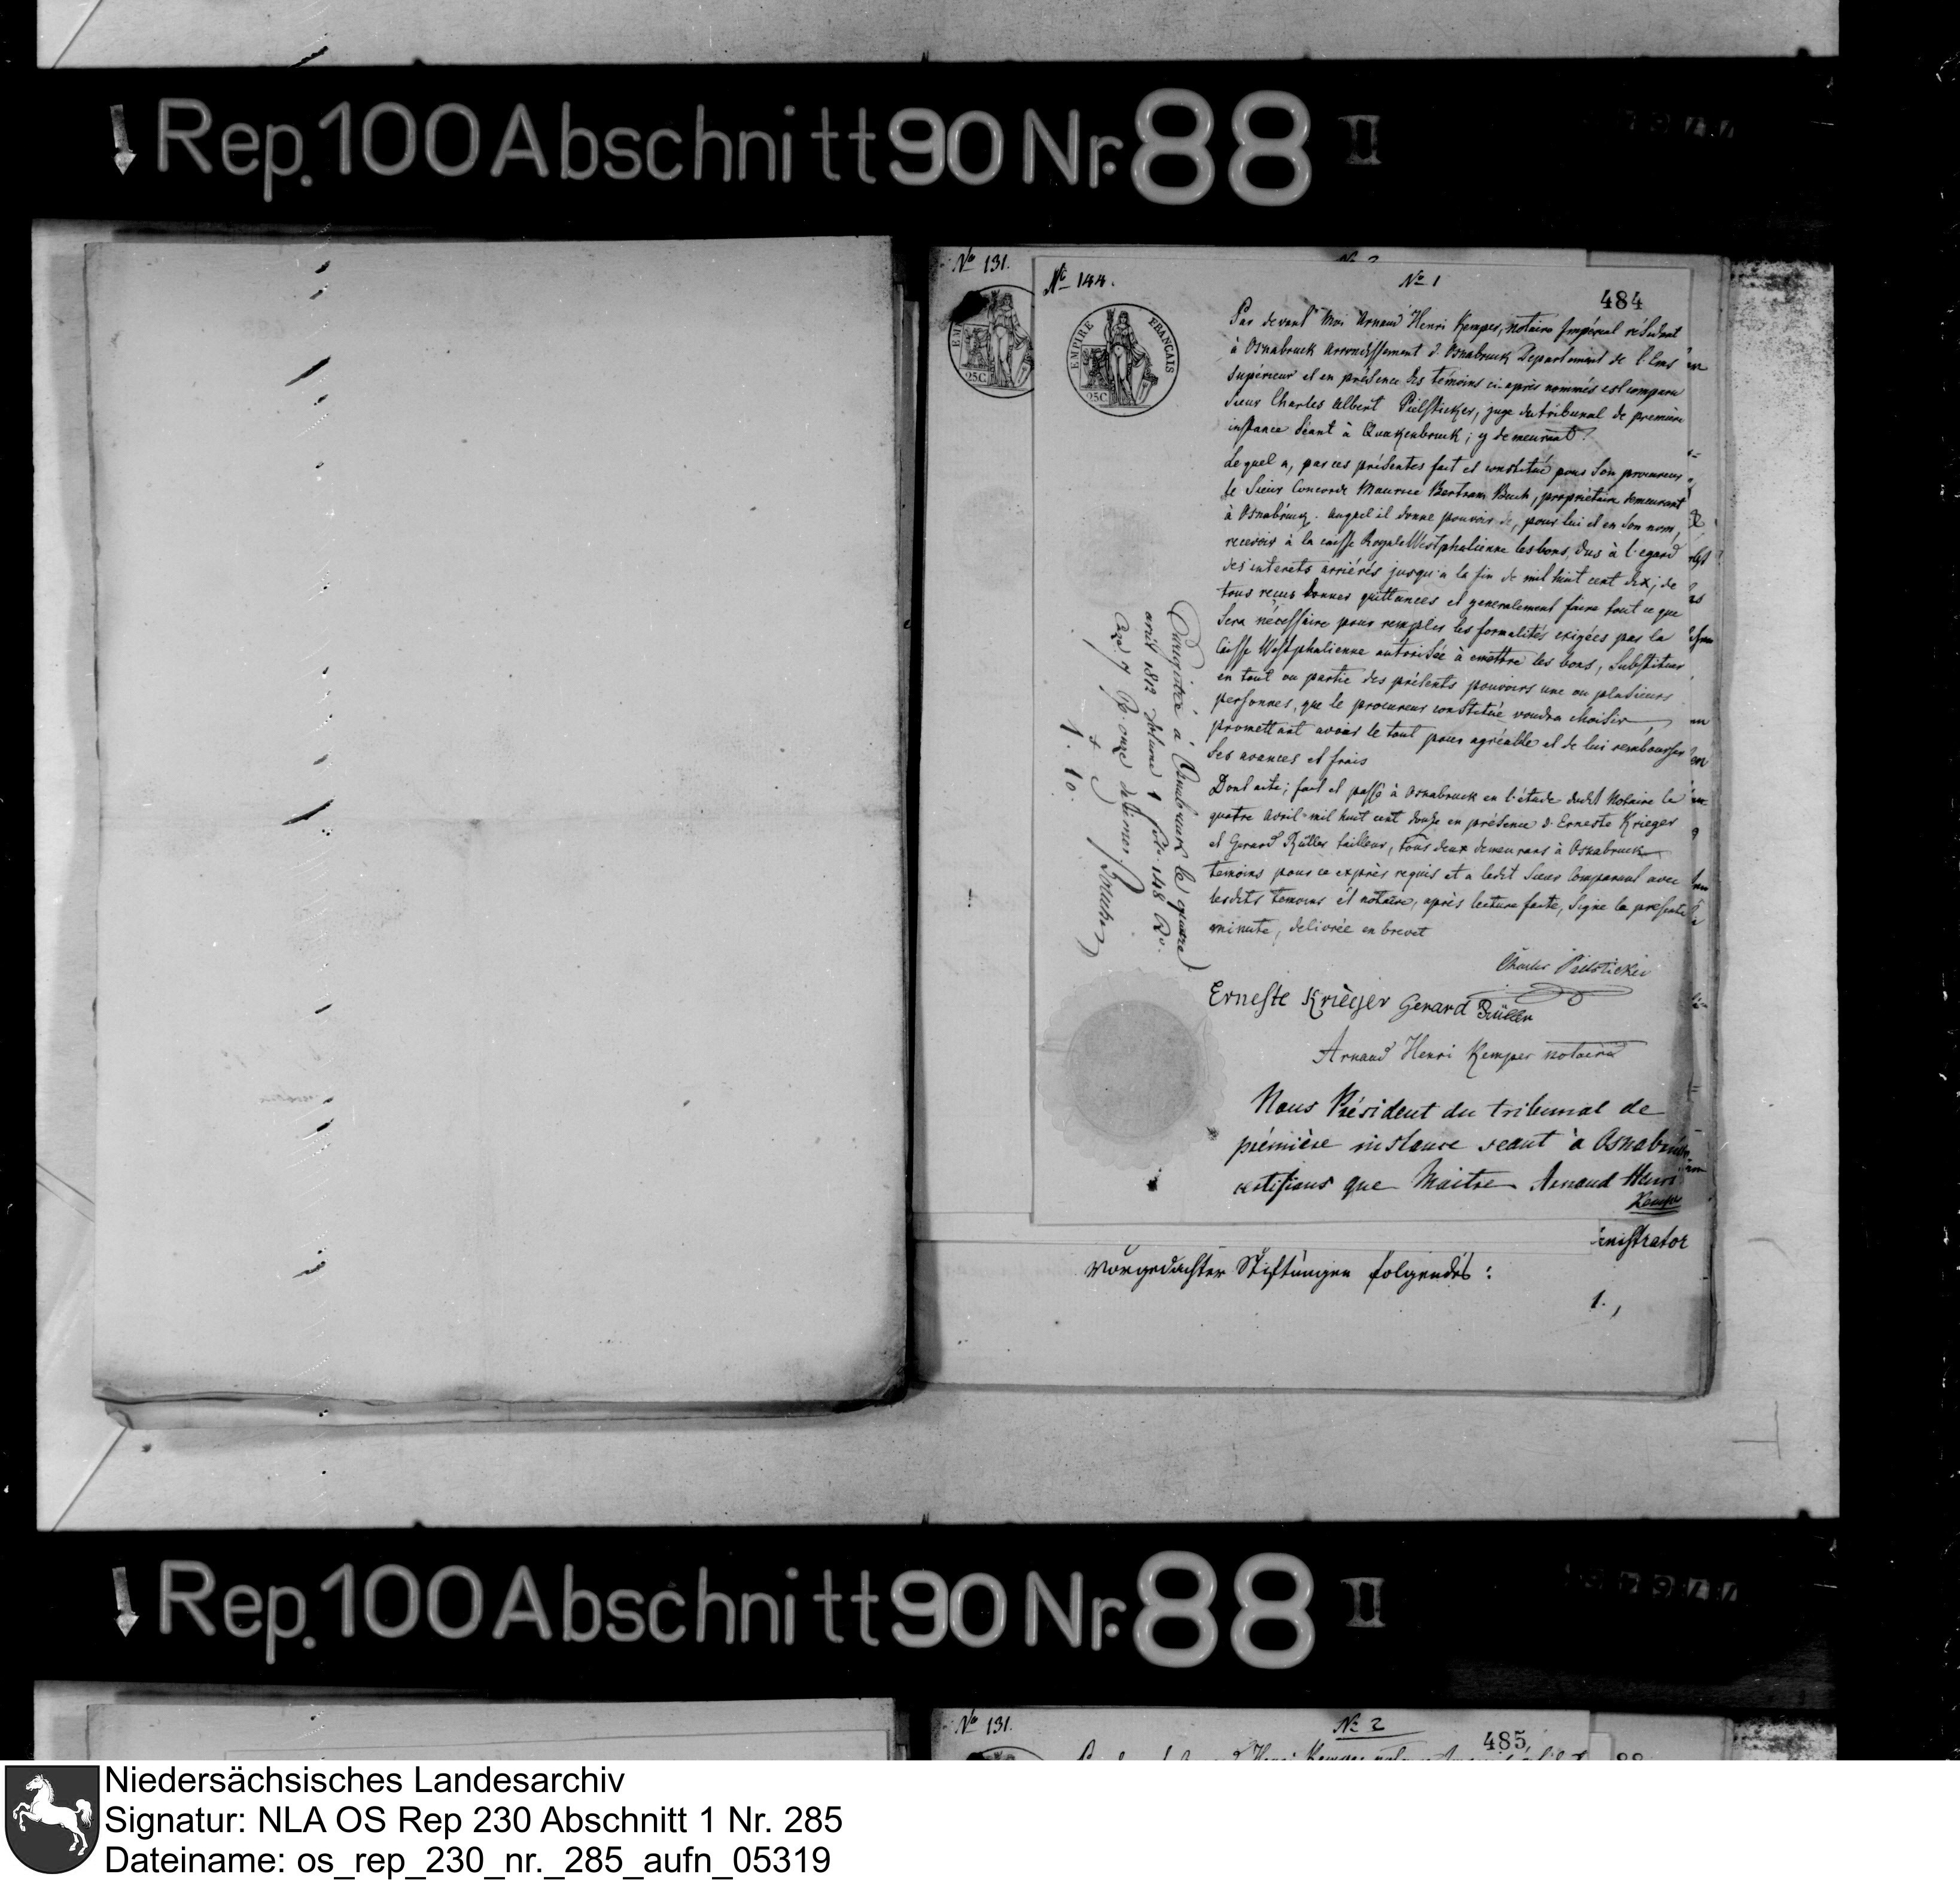 Rep. 100 Abschnitt 90 Nr. 88 II
No 131.
No 144.
No 1
484
EMPIRE FRANÇAIS
25C
25C
Par devant Moi Arnaud Henri Kemper, notaire Impérial résidant
à Osnabruck arrondissement d'Osnabruck Departement de l'Ems
supérieur et en présence des temoins ci-après nommés est comparu
Sieur Charles Albert Pielsticker, juge du tribunal de premiere
instance séant à Quakenbruck, y demeurant.
Lequel a, par ces présentes fait et constitué pour son procureur
le Sieur Concorde Maurice Bertram Buch, propriétaire demeurant
à Osnabruck. auquel il donne pouvoir de, pour lui et en son nom,
recevoir à la caisse Royale Westphalienne les bons, dus à l'egard
des interets arriérés jusqu'a la fin de mil huit cent dix; de
tous reçus donner quittances et generalement faire tout ce que
sera nécessaire pour remplir les formalités exigées par la
Caisse Westphalienne autorisée à emettre les bons, substituer
en tout ou partie des présents pouvoirs une ou plusieurs
personnes, que le procureur constitué voudra choisir
promettant avoir le tout pour agréable et de lui rembourser
ses avances et frais
Dont acte; fait et passé à Osnabruck en l'étude dudit Notaire le
quatre avril mil huit cent douze en présence d'Erneste Krieger
et Gerard Rüller tailleur, tous deux demeurans à Osnabruck
temoins pour ce exprès requis et a ledit Sieur Comparant avec
lesdits temoins et notaire, après lecture faite, signé la presente
minute, delivrée en brevet
Charles Pielsticker
Erneste Krièger Gerard Rüller
Arnaud Henri Kemper notaire
Enregistré à Osnabruck le quatre
avril 1812 volume 1 folio 148 Ro.
Case 7 onze
1. 10.
Nous Président du tribunal de
prémière instance seant à Osnabruck
certifions que Maitre Arnaud Henri
Kemper
inistrator
vorgedachter Stiftungen folgendes:
1.,
Rep. 100 Abschnitt 90 Nr. 88 II
No 131.
No 2
485
Niedersächsisches Landesarchiv
Signatur: NLA OS Rep 230 Abschnitt 1 Nr. 285
Dateiname: os_rep_230_nr._285_aufn_05319